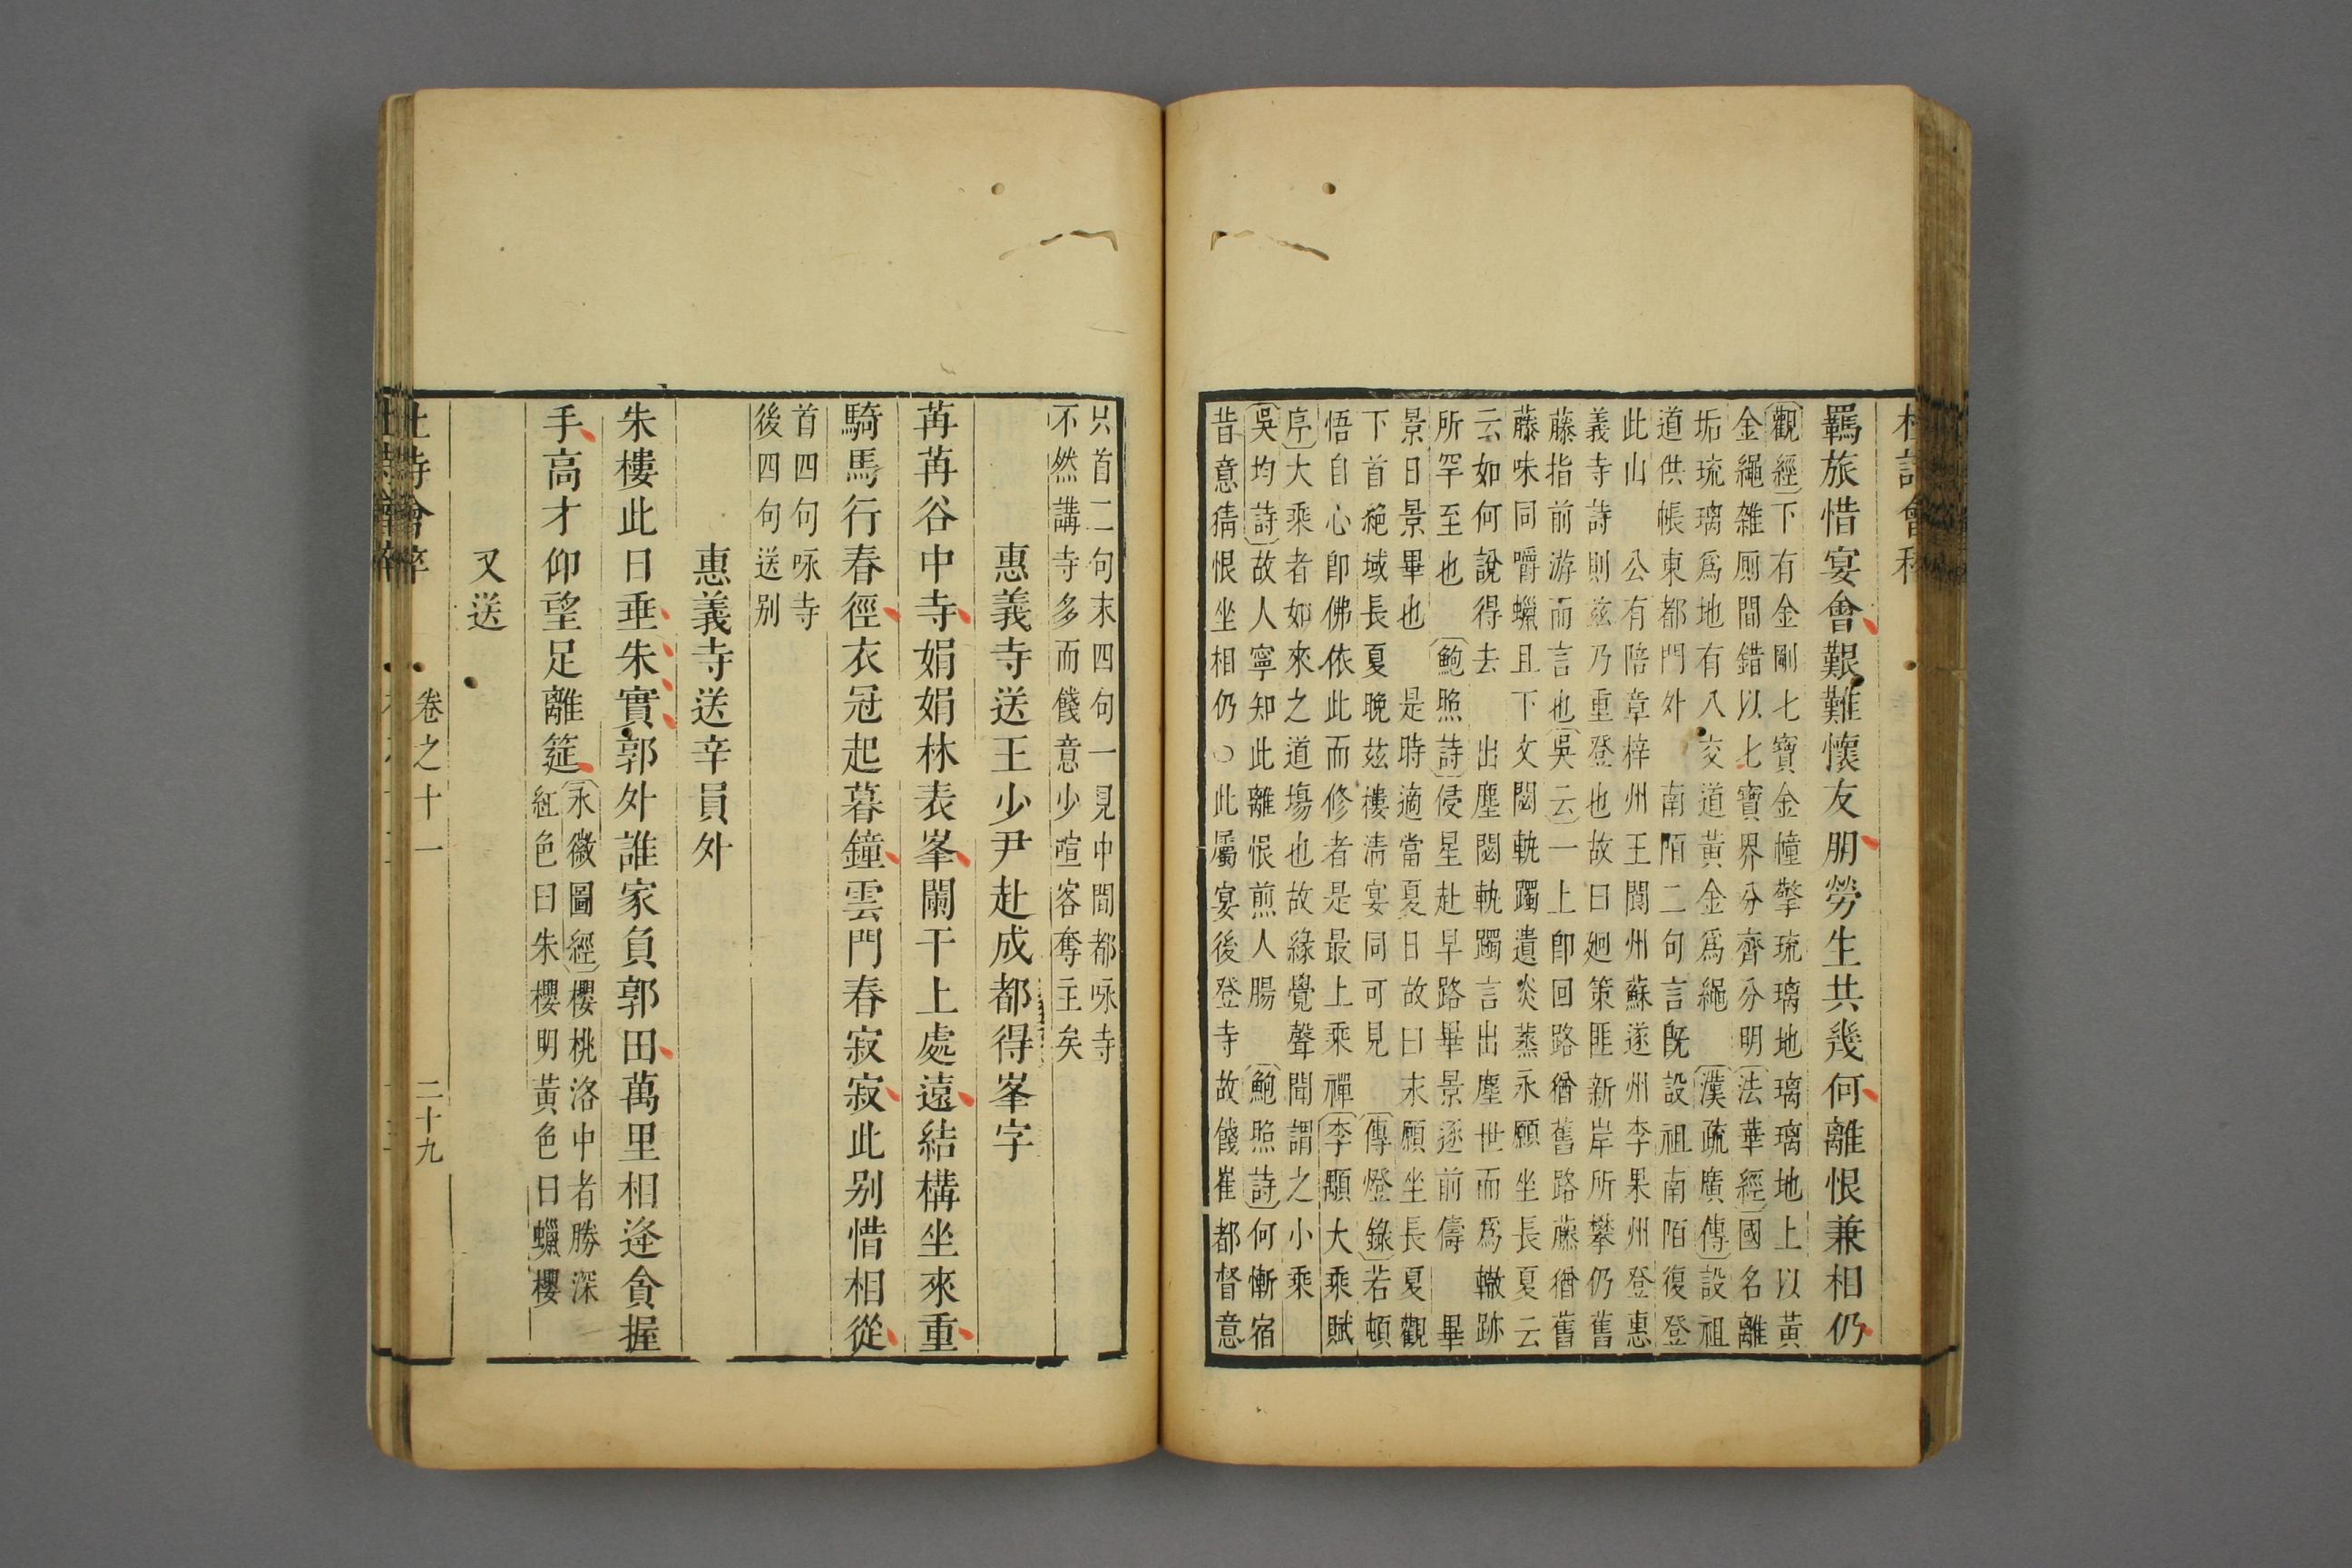 羈旅惜宴會艱難懷友朋勞生共幾何離恨兼相仍
觀經下有金剛七寶金幢擎琉璃地璃璃地上以黃
金繩雜厠間錯以七寶界分齊分明法華經國名離
垢琉璃爲地有八交道黃金爲繩漢疏廣傳設祖
道供帳東都門外南陌二句言既設祖南陌復登
此山公有陪章梓州王閬州蘇遂州李果州登惠
義寺詩則兹乃重登也故曰廻策匪新岸所攀仍舊
藤指前游而言也吳云一上卽回路猶舊路藤猶舊
藤味同嚼蠟且下文閎軌躅遺炎蒸永願坐長夏云
云如何說得去出塵閟軌躅言出塵世而爲轍跡
所罕至也鮑照詩侵星赴早路畢景逐前儔畢
景日景畢也是時適當夏日故曰末願坐長夏觀
下首絕域長夏晚兹樓淸宴同可見傳燈錄若頓
悟自心卽佛依此而修者是最上乘禪李顒大乘賦
序大乘者如來之道塲也故緣覺聲聞謂之小乘
吳均詩故人寧知此離恨煎人腸鮑照詩何慚宿
昔意猜恨坐相仍○此屬宴後登寺故餞崔都督意
只首二句末四句一見中間都咏寺
不然講寺多而餞意少喧客奪主矣
惠義寺送王少尹赴成都得峯字
苒苒谷中寺娟娟林表峯闌干上處遠結構坐來重
騎馬行春徑衣冠起暮鐘雲門春寂寂此别惜相從
首四句咏寺
後四句送别
惠義寺送辛員外
朱樓此日垂朱實郭外誰家負郭田萬里相逢貪握
手高才仰望足離筵
永徽圖經櫻桃洛中者勝深
紅色曰朱櫻明黃色曰蠟櫻
又送
卷之十一
二十九